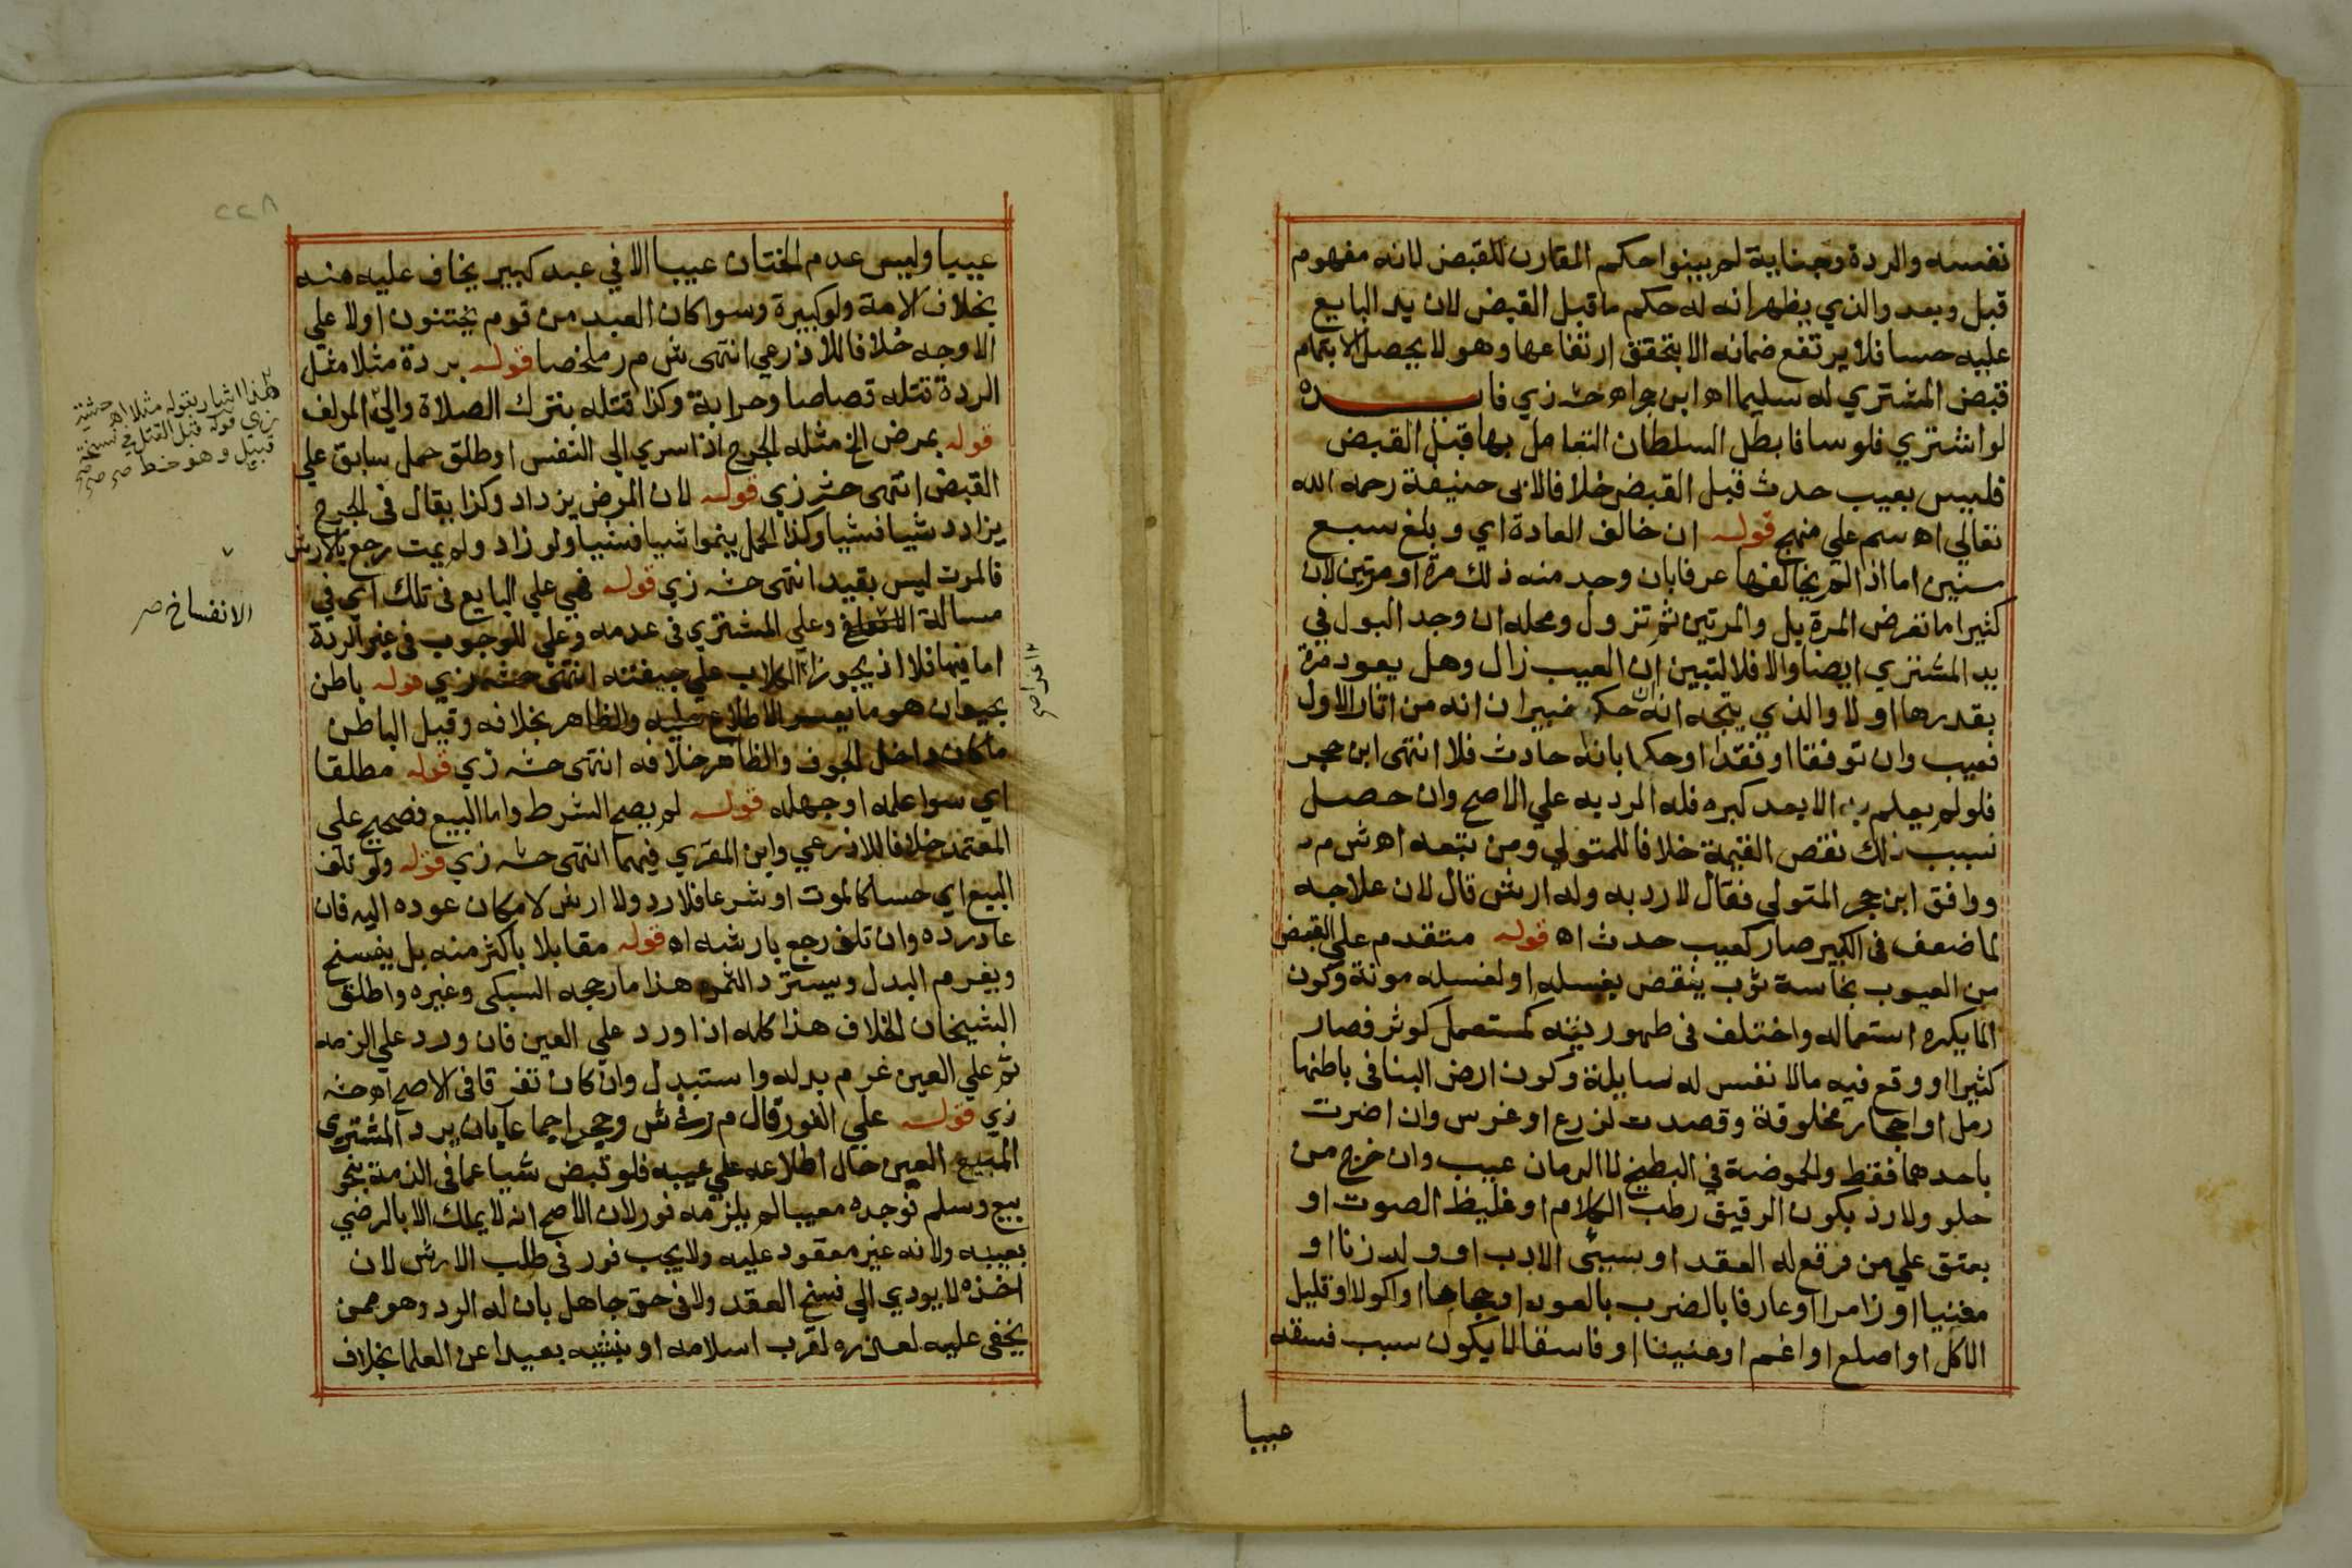 نفسه والردة وجناية لم يبينوا حكم المقارن للقبض لانه مفهوم
قبل وبعد والذي يظهر انه له حكم ما قبل القبض لان يد البايع
عليه حسا فلا يرتفع ضمانه الا بتحقق ارتفاعها وهو لا يحصل الا بتمام
قبض المشتري له سليما اه ابن حجر اه حشـ زي فايـــــدة
لو اشتري فلوسا فابطل السلطان التعامل بها قبل القبض
فليس بعيب حدث قبل القبض خلافا لابي حنيفة رحمه الله
تعالي اه سم علي منهج قوله ان خالف العادة اي وبلغ سبع
سنين اما اذا لم يخالفها عرفا بان وجد منه ذلك مرة او مرتين لان
كثيرا ما تعرض المرة بل والمرتين ثم تزول ومحله ان وجد البول في
يد المشتري ايضا والا فلا لتبين ان العيب زال وهل يعود مرة
بقدرها اولا والذي يتجه انه ان حكم خبيران انه من اثار الاول
فعيب وان توقفا او فقدا او حكما بانه حادث فلا انتهى ابن حجر
فلو لم يعلم به الا بعد كبره فله الرد به علي الاصح وان حصل
بسبب ذلك نقص القيمة خلافا للمتولي ومن تبعه اه ش م ر
ووافق ابن حجر المتولي فقال لا رد به وله ارش قال لان علاجه
لما ضعف في الكبير صار كعيب حدث اه قوله متقدم علي القبض
من العيوب نجاسة ثوب ينقص بغسله او لغسله مونة وكون
الما يكره استعماله واختلف في طهوريته كمستعمل كوثر فصار
كثيرا او وقع فيه ما لا نفس له سايلة وكون ارض البنا في باطنها
رمل او احجار مخلوقة وقصدت لزرع او غرس وان اضرت
باحدهما فقط والحموضة في البطيخ لا الرمان عيب وان خرج من
حلو ولا رد بكون الرقيق رطب الكلام او غليظ الصوت او
يعتق علي من وقع له العقد او سيئ الادب او ولد زنا او
مغنيا او زامرا او عارفا بالضرب بالعود او حجاما او اكولا او قليل
الاكل او اصلع او اغم او عنينا او فاسقا لا يكون سبب فسقه
عيبا
٢٢٨
عيبيا وليس عدم الختان عيبا الا في عبد كبير يخاف عليه منه
بخلاف الامة ولو كبيرة وسوا كان العبد من قوم يختنون اولا علي
الاوجه خلافا للاذرعي انتهى ش م ر ملخصا قوله بردة مثلا مثل
الردة قتله قصاصا وحرابة وكذا قتله بترك الصلاة والي المولف
قوله بمرض الخ مثله الجرح اذا سري الي النفس او طلق حمل سابق علي
القبض انتهى حشـ زي قوله لان المرض يزداد وكذا يقال في الجرح
يزادد شيا فشيا وكذا الحمل ينموا شيا فشيا ولو زاد ولم يمت رجع بالارش
فالموت ليس بقيد انتهى حشـ زي قوله فهي علي البايع في تلك اي في
مسالة وعلي المشتري في عدمه وعلي للوجوب في غير الردة
اما فيها فلا اذ يجوز اغرا الكلاب علي جيفته انتهى حشـ زي قوله باطن
بحيوان هو ما يعسر الاطلاع عليه والظاهر بخلافه وقيل الباطن
ما كان داخل الجوف والظاهر خلافه انتهى حشـ زي قوله مطلقا
اي سوا علمه او جهله قوله لم يصح الشرط واما البيع فصحيح علي
المعتمد خلافا للاذرعي وابن المقري فيهما انتهى حشـ زي قوله ولو تلف
البيع اي حسا كالموت او شرعا فلا رد ولا ارش لامكان عوده اليه فان
عاد رده وان تلف رجع بارشه اه قوله مقابلا باكثر منه بل يفسخ
ويغرم البدل ويسترد الثمن هذا ما رجحه السبكي وغيره واطلق
الشيخان الخلاف هذا كله اذا ورد علي العين فان ورد علي الذمه
ثم علي العين غرم بدله واستبدل وان كان تفرقا في الاصح اه حشـ
زي قوله علي الفور قال م ر في ش وحجر اجماعا بان يرد المشتري
المبيع العين حال اطلاعه علي عيبه فلو قبض شيا عما في الذمة بنحو
بيع وسلم فوجده معيبا لم يلزمه فور لان الاصح انه لا يملك الا بالرضي
بعيبه ولانه غير معقود عليه ولا يجب فور في طلب الارش لان
اخذه لا يودي الي فسخ العقد ولا في حق جاهل بان له الرد وهو ممن
يخفى عليه لعذره لقرب اسلامه او نشيه بعيدا عن العلما بخلاف
لهذا اشار بقوله مثلا اه حشية
زي قوله قبل القتل في نسخة
قبيل وهو خط صح
الانفساخ صح